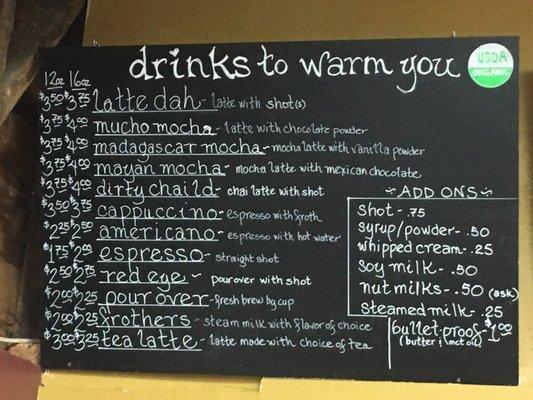 drinks to warm you
USDA
ORGANIC
12oz 16oz
$3.50 $3.75 latte dah - latte with shot(s)
$3.75 $4.00 mucho mocha - latte with chocolate powder
$3.75 $4.00 madagascar mocha - mocha latte with vanilla powder
$3.75 $4.00 mayan mocha - mocha latte with mexican chocolate
$3.75 $4.00 dirty chai ld - chai latte with shot
$3.50 $3.75 cappuccino - espresso with froth
$2.25 $2.50 americano - espresso with hot water
$1.75 $2.00 espresso - straight shot
$2.50 $2.75 red eye - pour over with shot
$2.00 $2.25 pour over - fresh brew by cup
$2.00 $2.25 frothers - steam milk with flavor of choice
$3.00 $3.25 tea latte - latte made with choice of tea
~ ADD ONS ~
shot - .75
syrup/powder - .50
whipped cream - .25
soy milk - .50
nut milks - .50 (ask)
steamed milk - .25
bullet-proof - $1.00
(butter & mct oil)